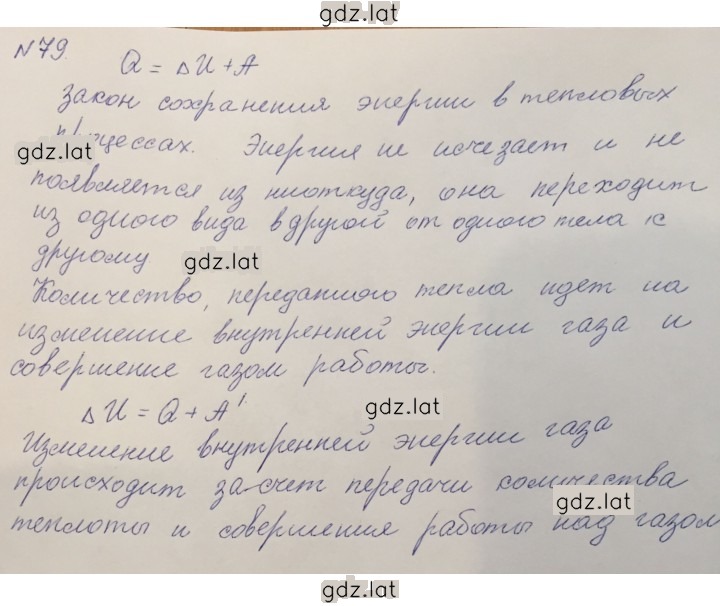 gdz.lat
№79.
Q = ΔU + A
закон сохранения энергии в тепловых
процессах. Энергия не исчезает и не
gdz.lat
появляется из ниоткуда, она переходит
из одного вида в другой от одного тела к
другому
gdz.lat
Количество, переданного тепла идет на
изменение внутренней энергии газа и
совершение газом работы.
ΔU = Q + A'
gdz.lat
Изменение внутренней энергии газа
происходит за счет передачи количества
gdz.lat
теплоты и совершения работы над газом
gdz.lat